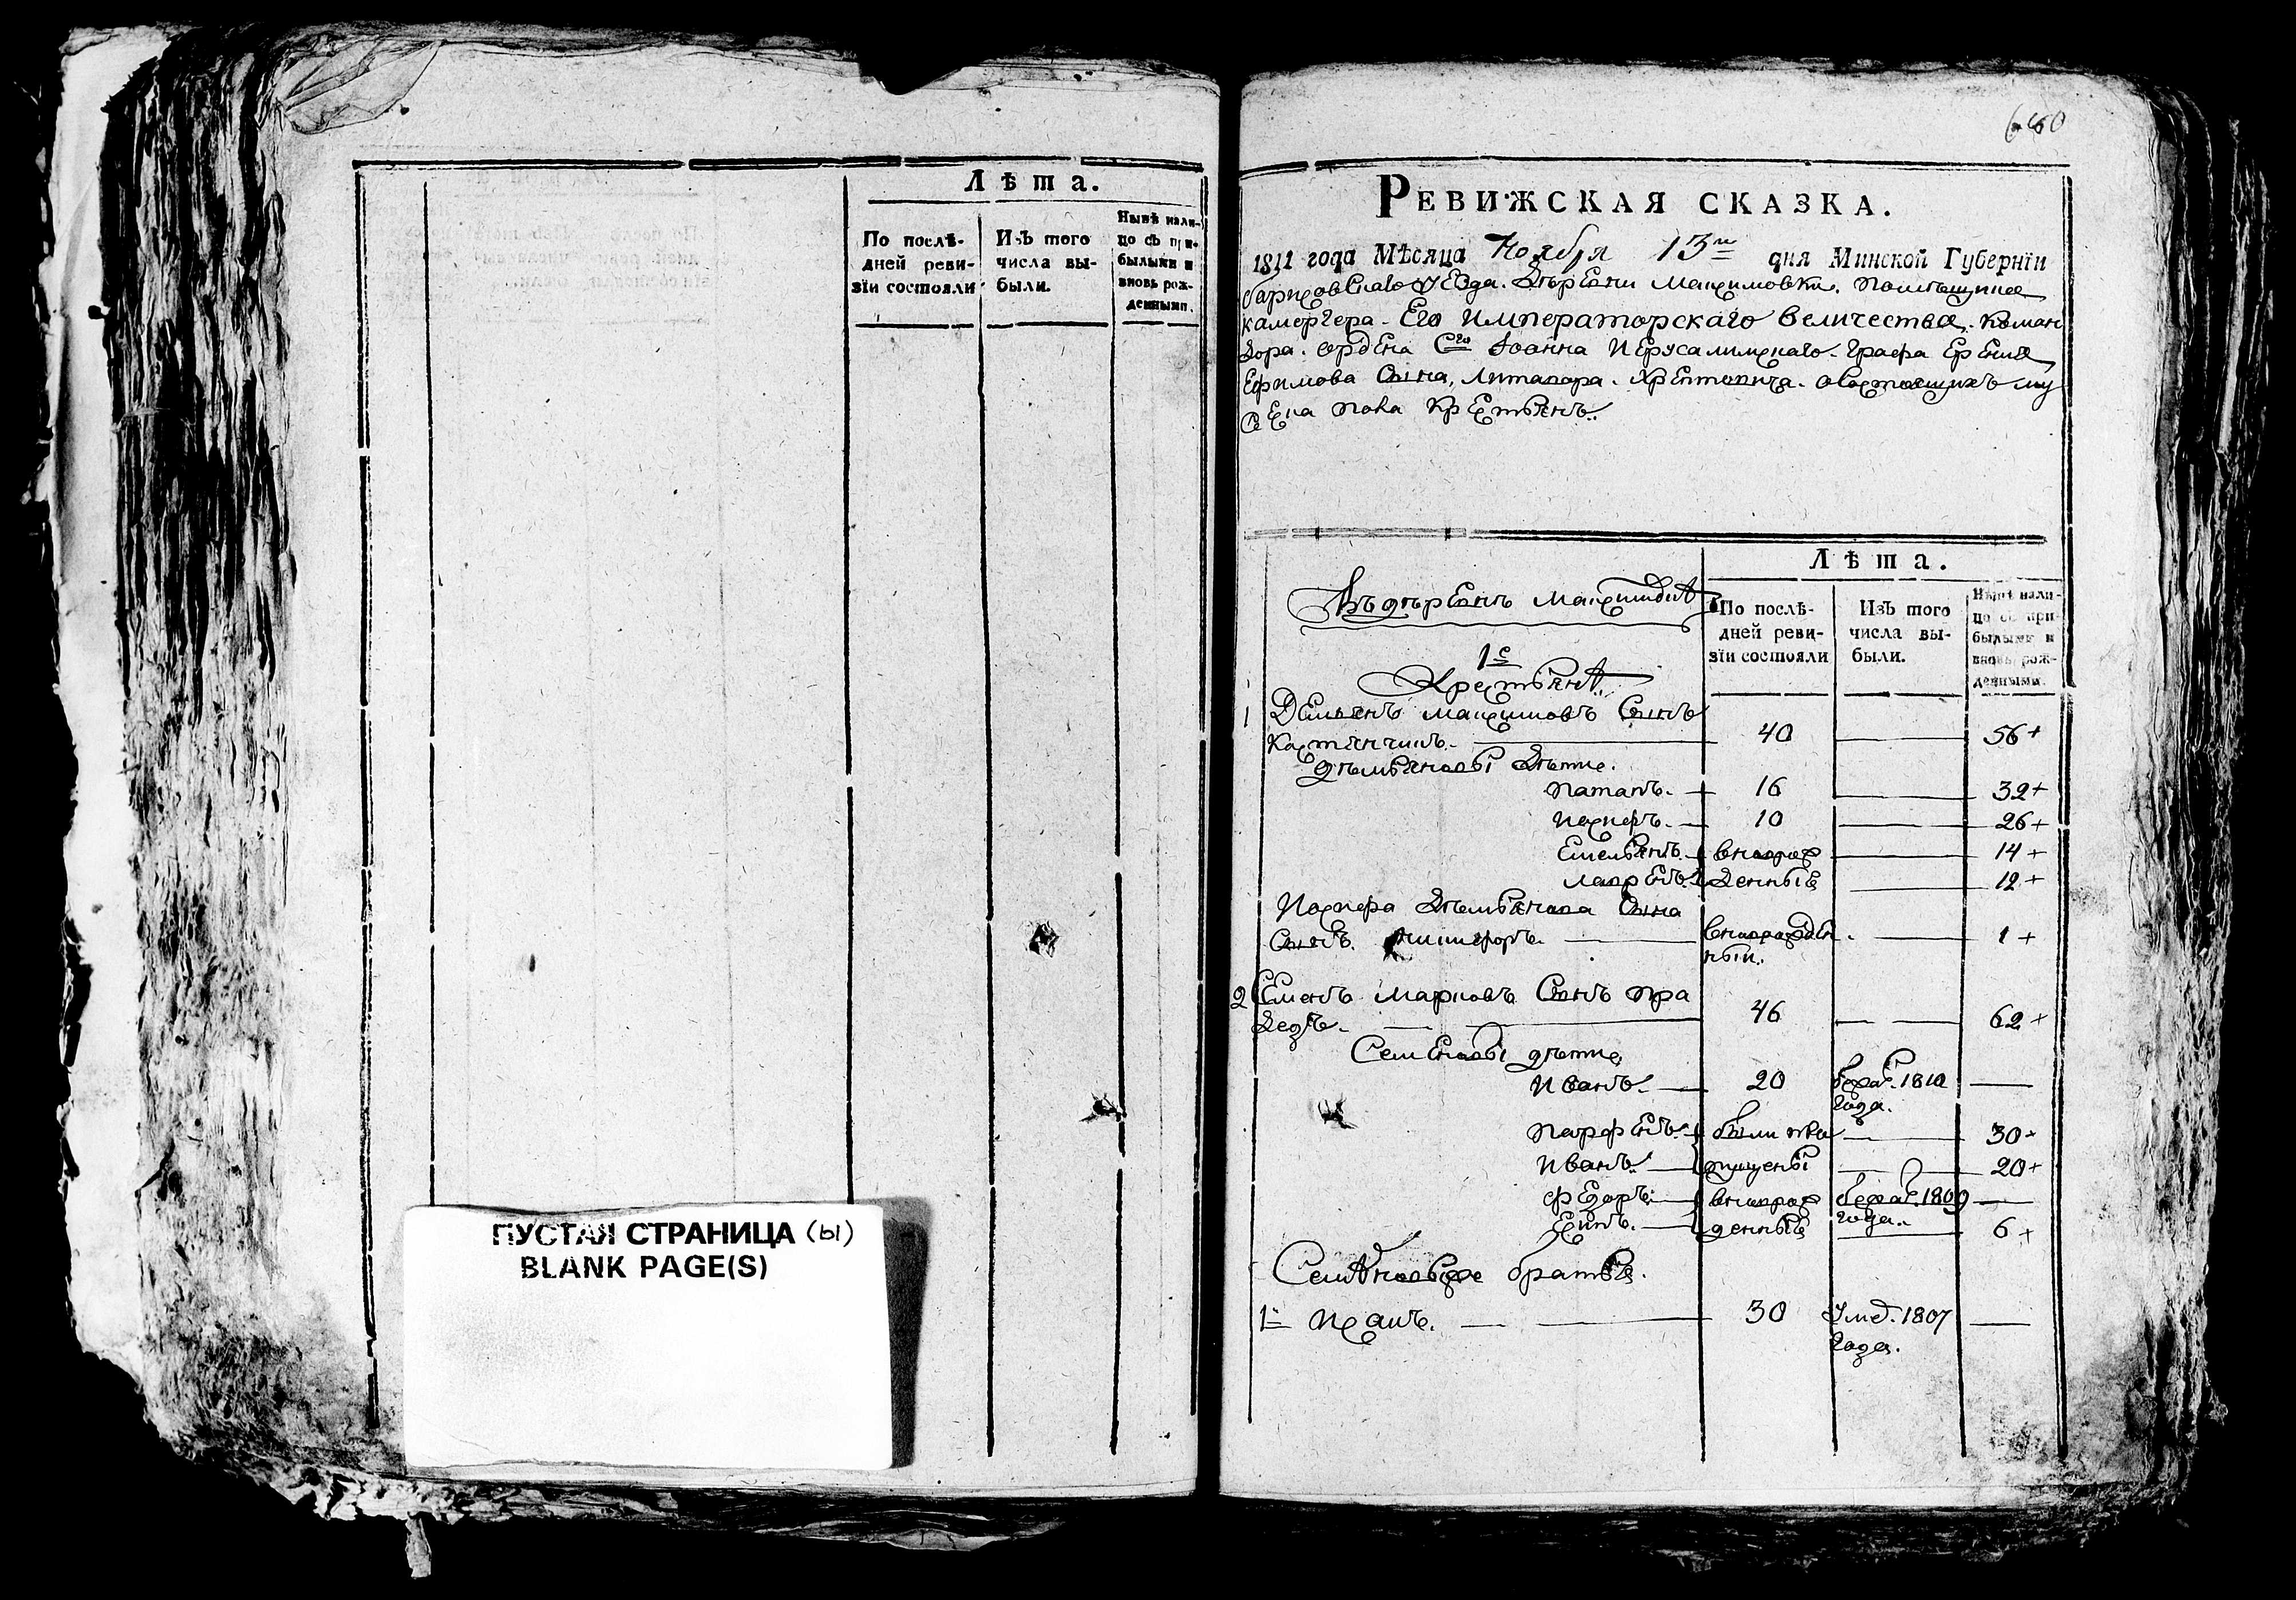 Лѣта.
По послѣ-
дней реви-
зїи состояли
ИзЪ того
числа вы-
были.
Нынѣ нали-
цо съ при-
былыми и
вновь рож-
денными.
ПУСТАЯ СТРАНИЦА (ы)
BLANK PAGE(S)
660
РЕВИЖСКАЯ СКАЗКА.
1811 года Мѣсяца Ноября 13го дня Минской Губернїи
уезда. помещика
камергера Его Императорскаго величества. коман
дора. ордена Сго Іоанна Иерусалимскаго. Графа
Ефимова Сына, Литавора. Хрептовича. о состоящихъ му
ска пола крестьянъ.
Лѣта.
По послѣ-
дней реви-
зїи состояли
ИзЪ того
числа вы-
были.
Нынѣ нали-
цо съ при-
былыми и
вновь рож-
денными.
Въ деревне
1е
Крестьяне
1 Демьянъ Максимовъ Сынъ
40 — 56+
Демьяновы дети.
16 — 32+
10 — 26+
Емельянъ. вновьрож — 14+
денные — 12+
Демьянова Сына
Сынъ. Никифоръ. — вновьрожден — 1+
ный.
2 Семенъ Марковъ Сынъ пра
дедъ. — 46 — 62+
Семеновы дети
Иванъ. — 20 1810 —
года.
Парфенъ. были — 30+
Иванъ. — пущены — 20+
Федоръ. — вновьрож 1809 —
года.
— денные — 6+
Семеновы братья.
1й — 30 Умер. 1807 —
года.